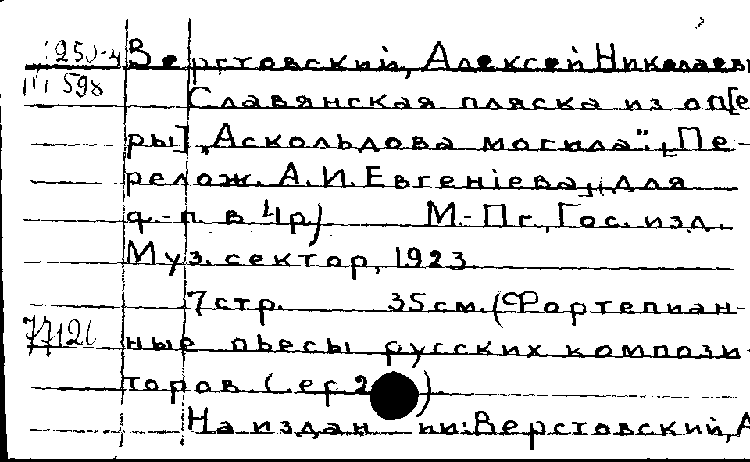 Верстовский, Алексей Николаеви
III 598
Славянская пляска из оп[е
ры] „Аскольдова могила". Пе-
релож. А. И. Евгеніева для
ф.-п. в 4 р) М.-Пг., Гос. изд.
Муз. сектор, 1923
7 стр. 35 см. (Фортепиан-
ные пьесы русских компози-
торов Сер 2 )
На издан ии: Верстовский, А